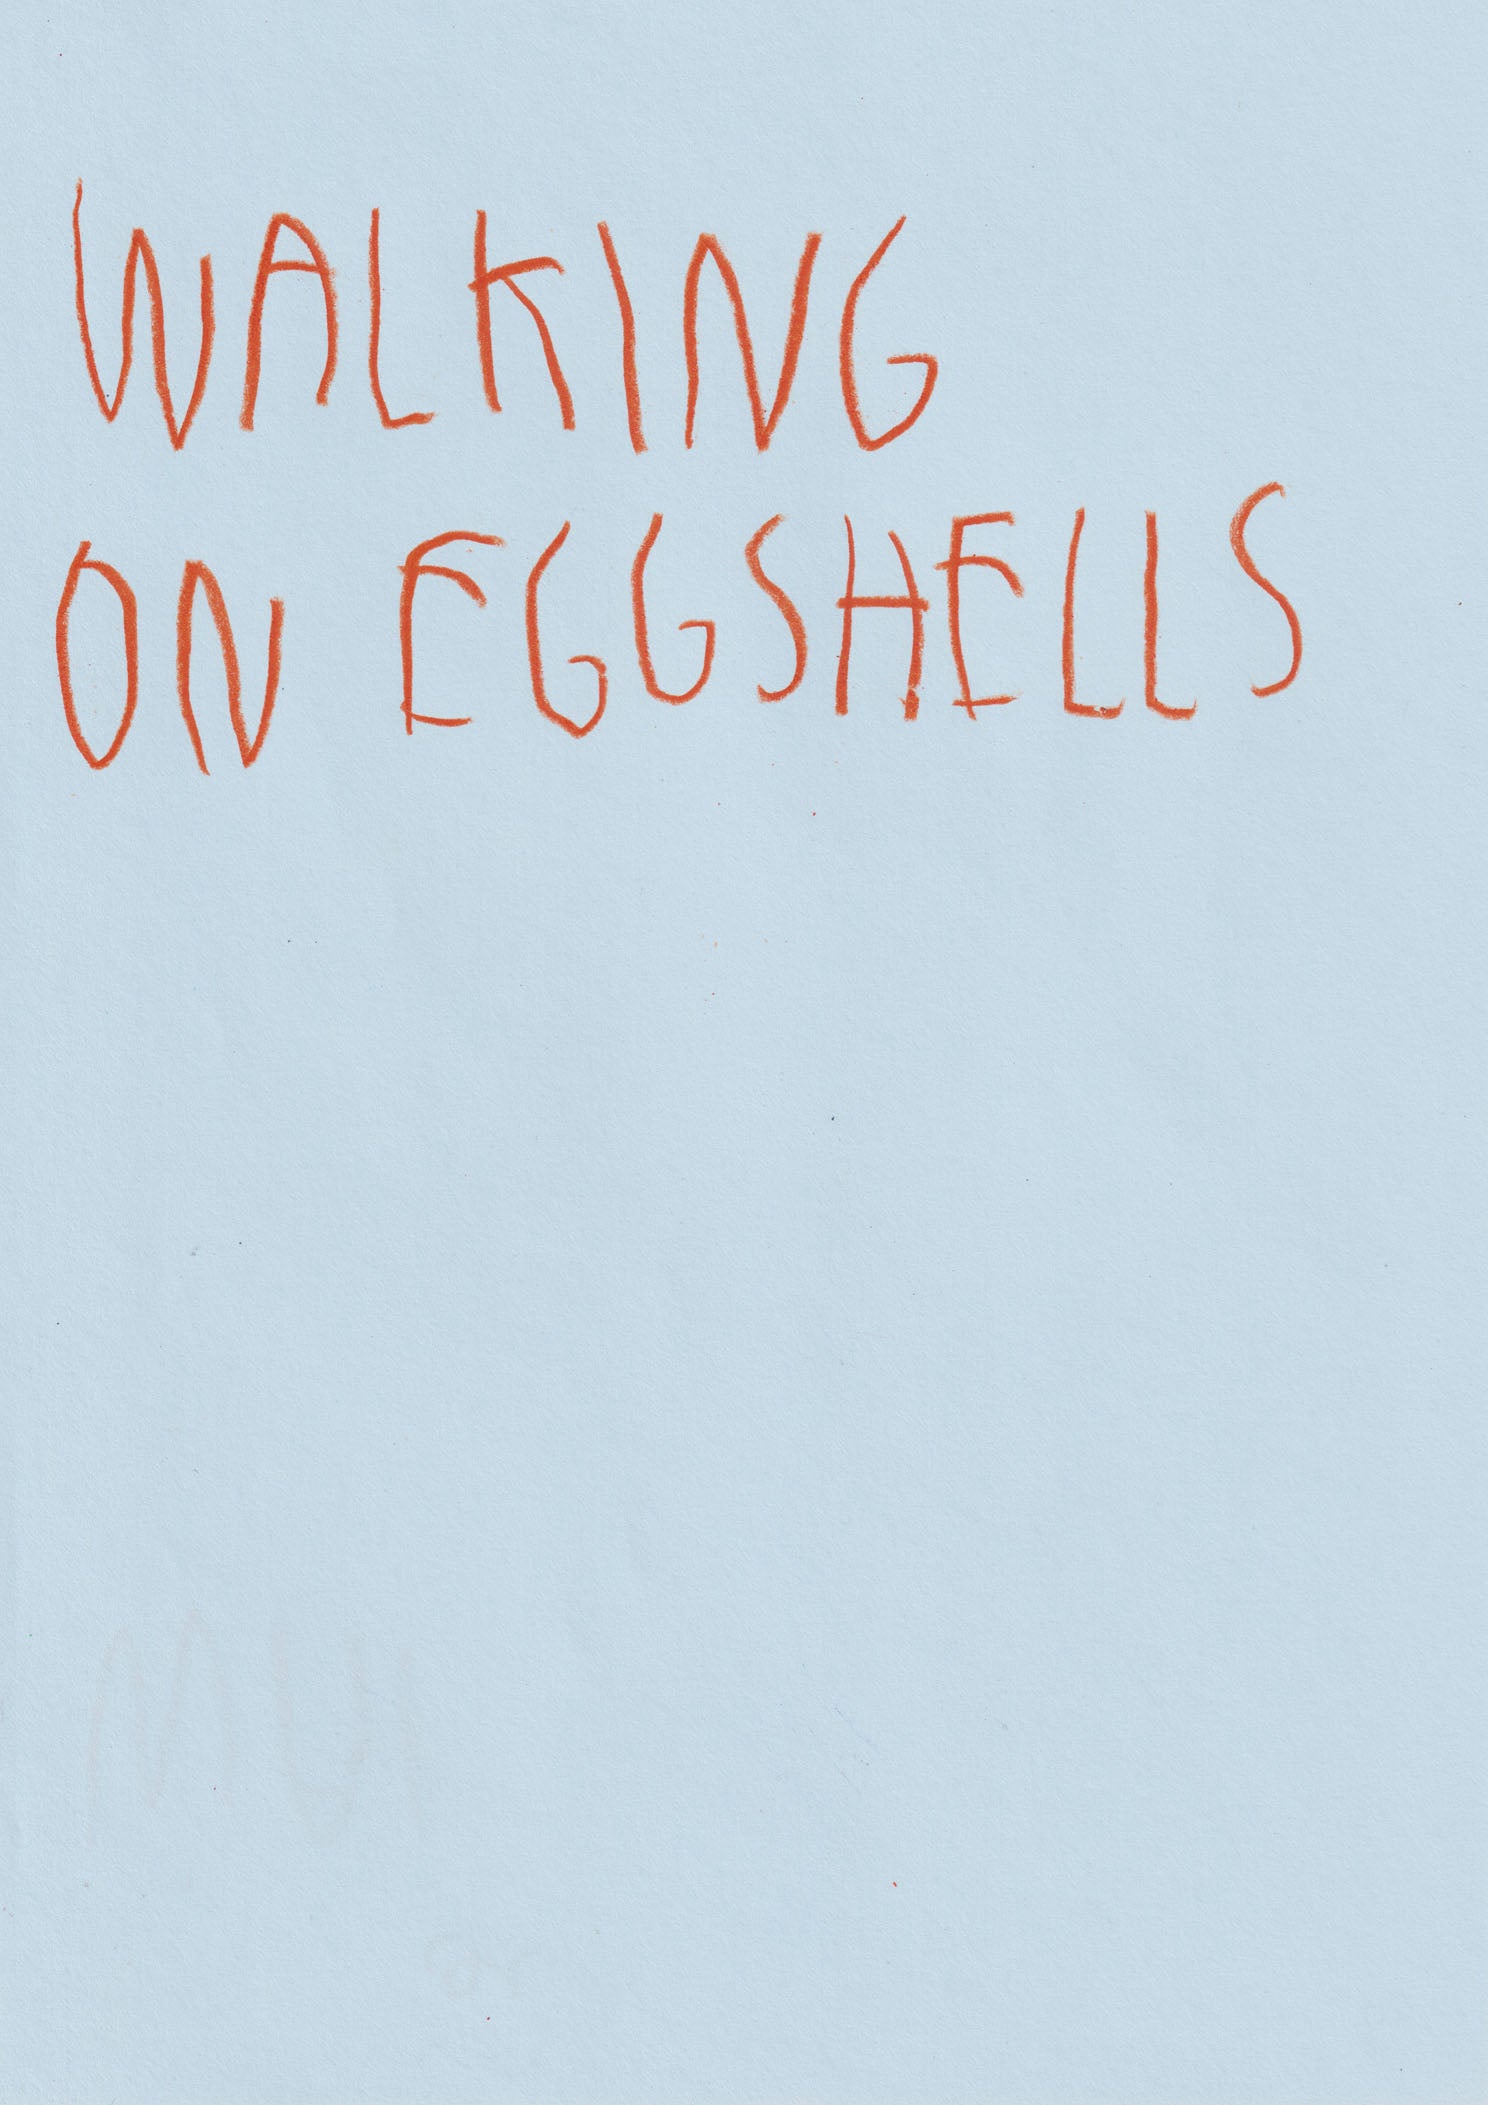 WALKING
ON EGGSHELLS